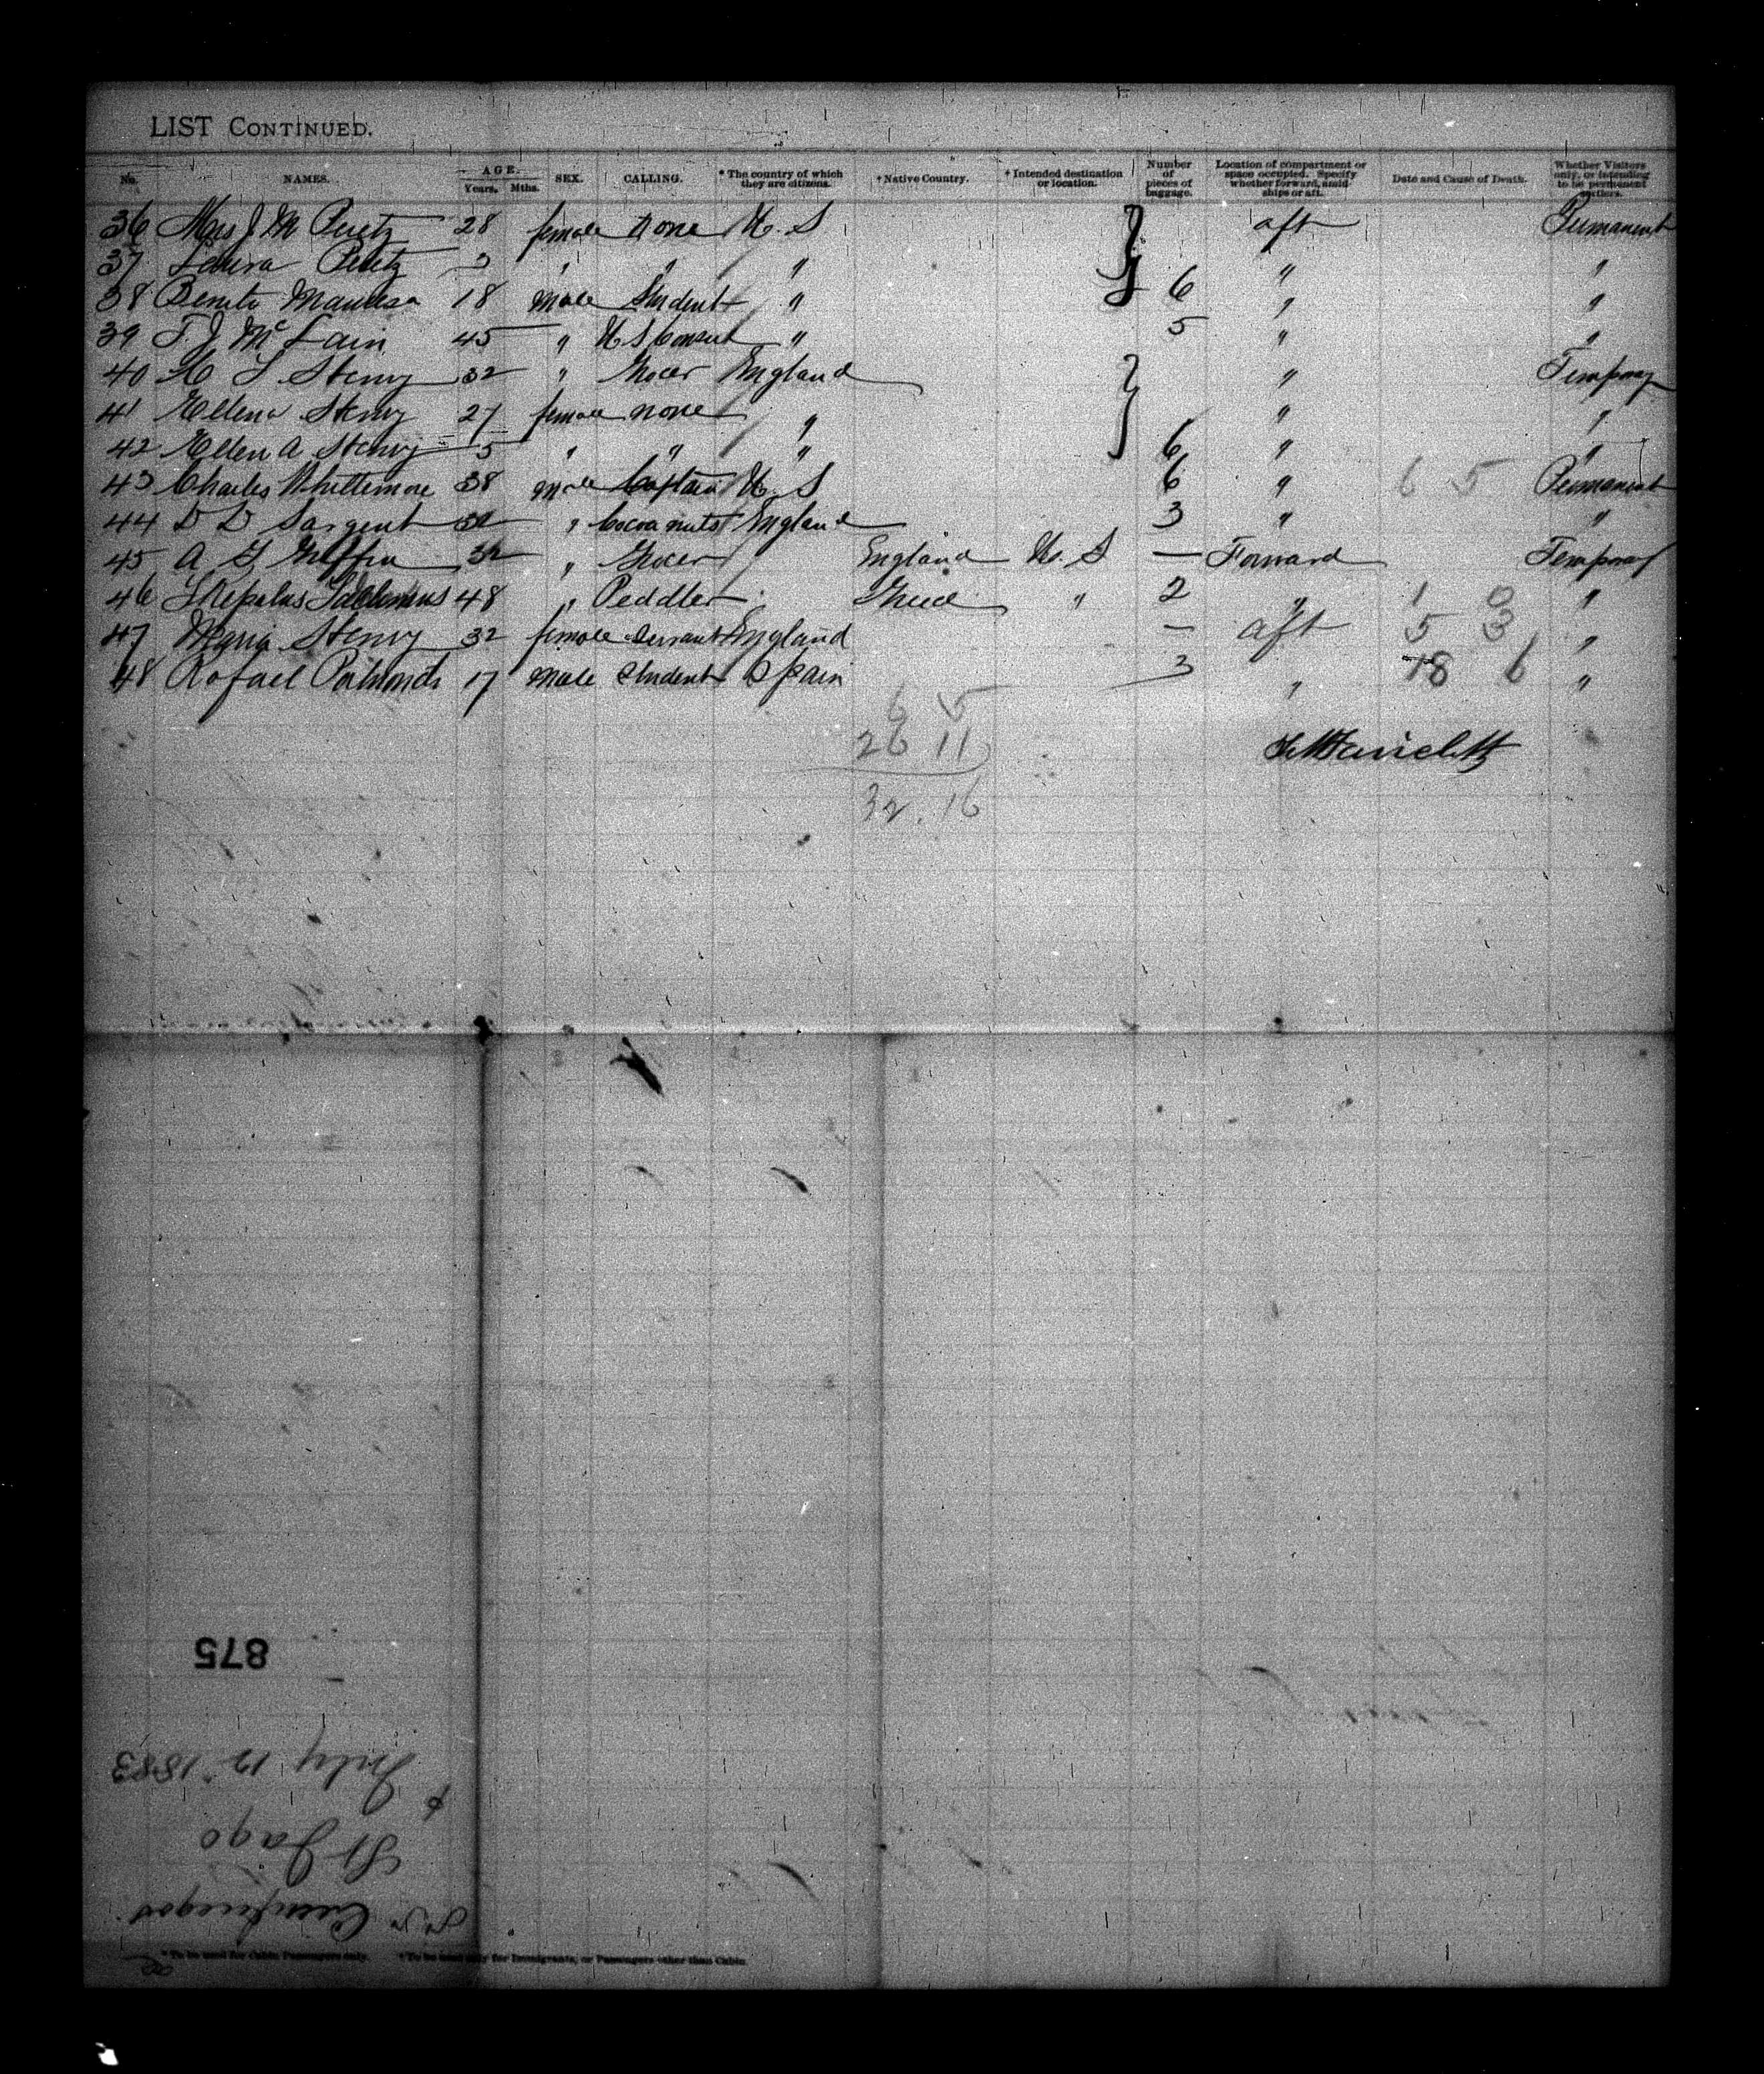 LIST CONTINUED.
No. NAMES. AGE. Years. Mths. SEX. CALLING. * The country of which they are citizens. † Native Country. † Intended destination or location. Number of pieces of baggage. Location of compartment or space occupied. Specify whether forward, amid ships or aft. Date and Cause of Death. Whether Visitors only, or intending to be permanent settlers.
36 Mrs J M 28 female none U. S aft Permanent
37 Laura 〃 〃 〃 〃 〃
38 Benito 18 male Student 〃 6 〃 〃
39 T. J McLain 45 〃 U S Consul 〃 5 〃 〃
40 32 〃 Grocer England 〃 Temporary
41 Ellena 27 female none 〃 〃 〃
42 Ellen A 5 〃 〃 〃 6 〃 〃
43 Charles Whittemore 38 male Captain U. S 6 〃 6 5 Permanent
44 D D Sargent 〃 Cocoa nuts England 3 〃 〃
45 A Griffin 32 〃 Grocer England U. S — Forward Temporary
46 48 〃 Peddler Greece 〃 2 〃 1 0 〃
47 Maria 32 female Servant England — aft 5 3 〃
48 Rafael 17 male Student Spain 3 〃 18 6 〃
6 5
26 11
32. 16
875
July 12 1883
St Jago
Cienfuegos
* To be used for Cabin Passengers only. † To be used only for Immigrants, or Passengers other than Cabin.